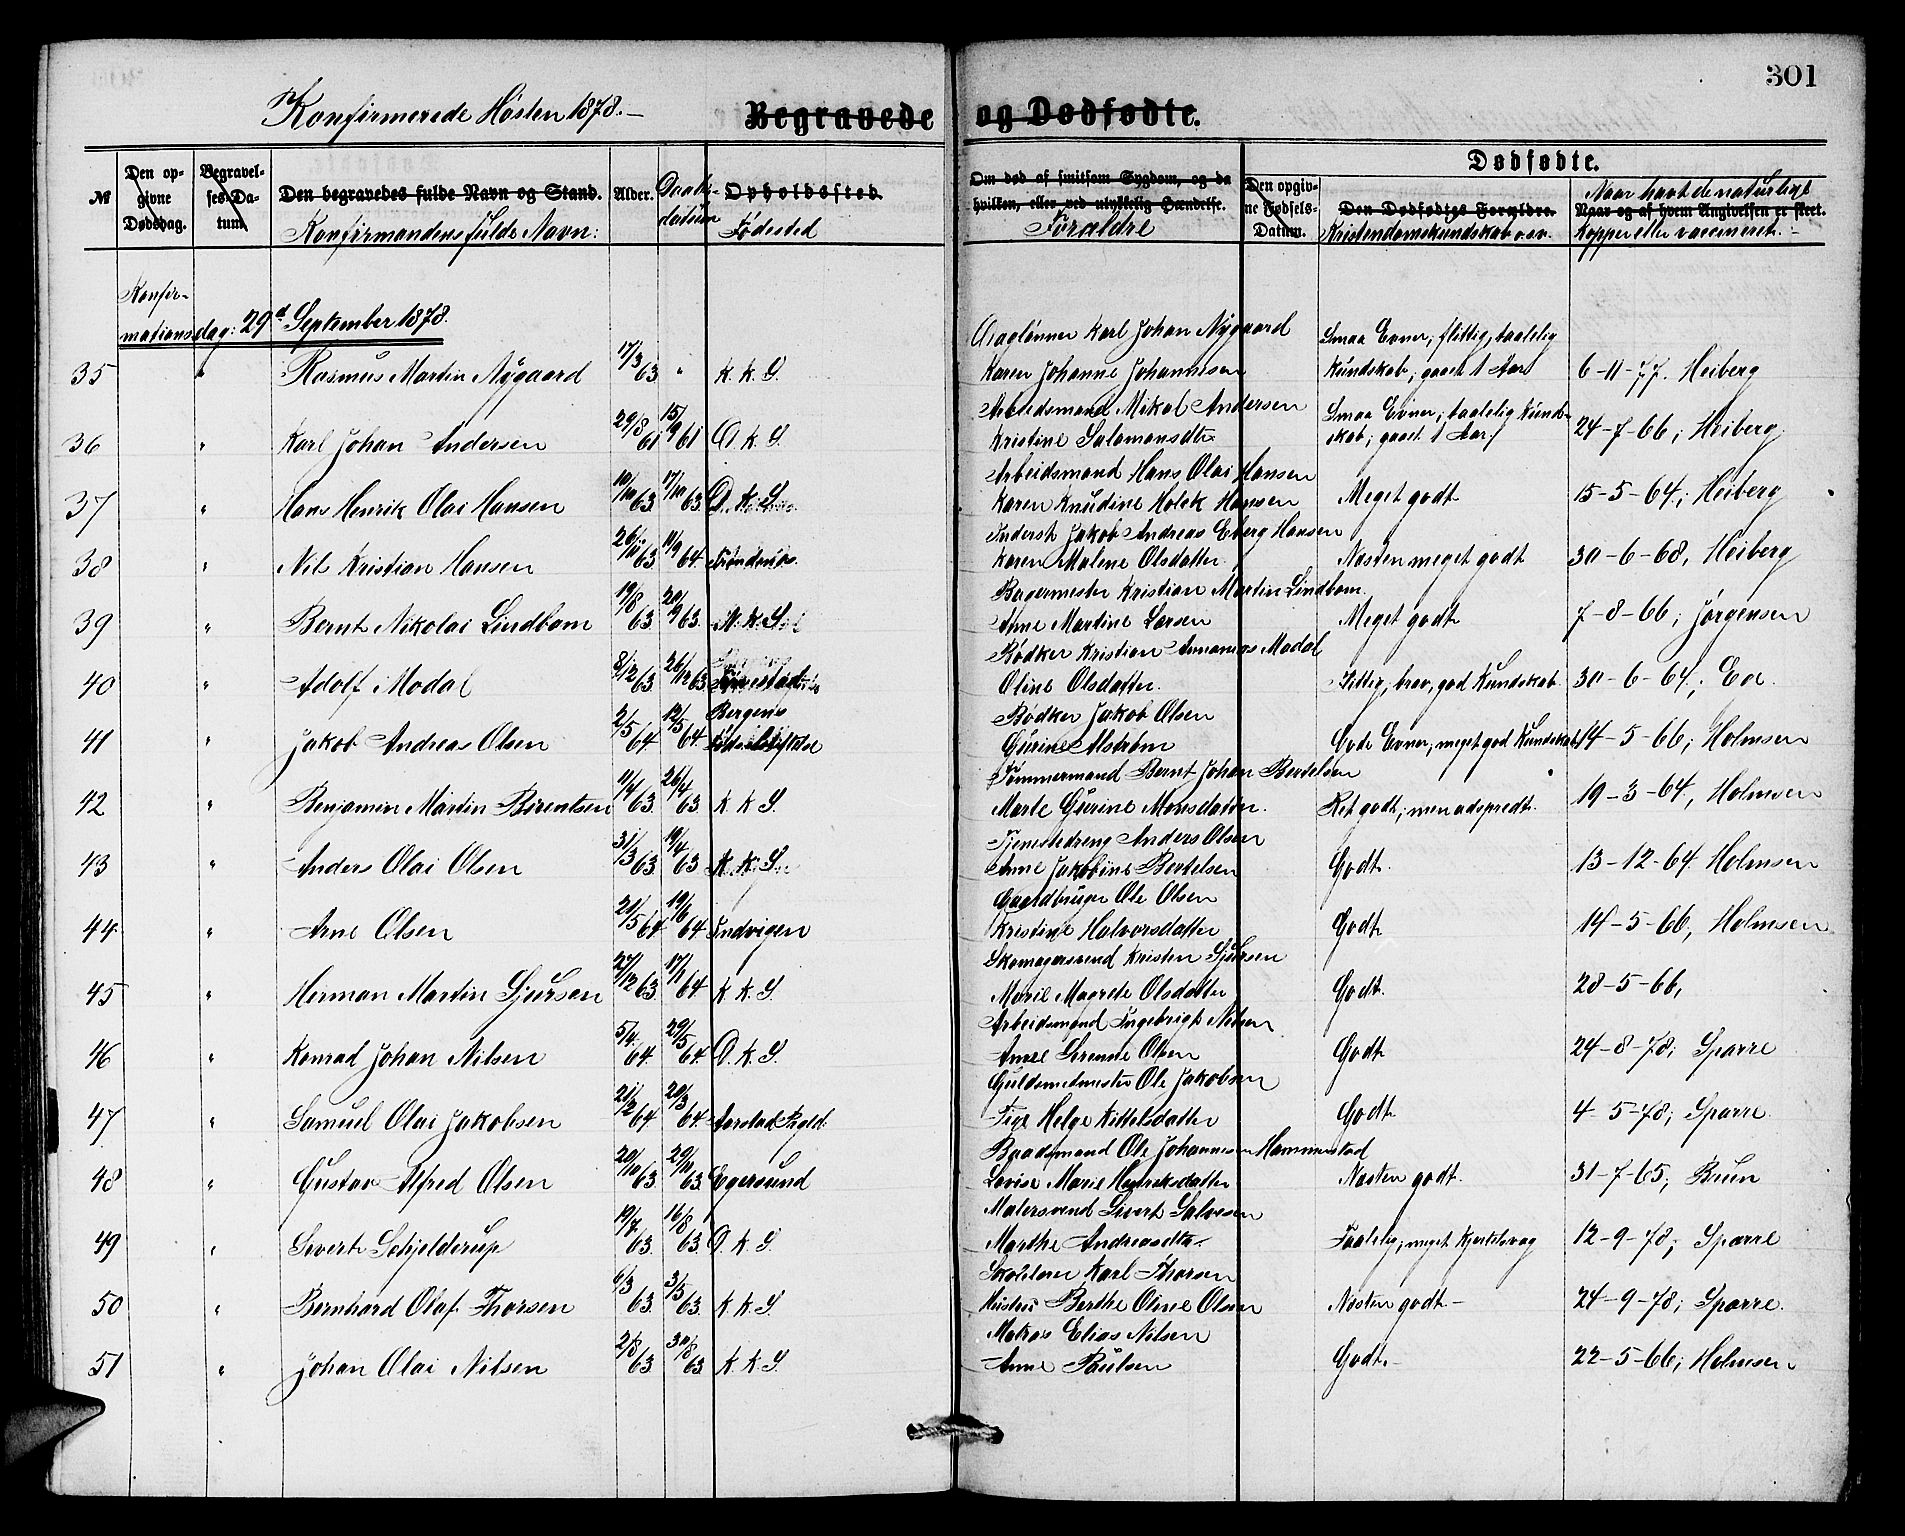 301
Konfirmerede Høsten 1878.—
Begravede og Dødfødte.
№
Den opgivne Dødsdag.
Begravelses-Datum.
Den begravedes fulde Navn og Stand.
Konfirmandens fulde Navn:
Alder.
Daabsdatum
Opholdssted
Fødested
Om død af smitsom Sygdom, og da hvilken, eller ved ulykkelig Hændelse.
Forældre
Dødfødte.
Den opgivne Fødsels-Datum.
Den Dødfødtes Forældre.
Kristendomskundskab o.s.v.
Naar havt de naturlige
Naar og af hvem Angivelsen er skeet.
Kopper eller vaccineret.—
Konfirmationsdag: 29d September 1878.
35 " Rasmus Martin Nygaard 17/3 63 " K. K. S. Daglønner Karl Johan Nygaard Karen Johanne Johannesen Smaa Evner, flittig, taalelig Kundskab, gaaet 1 Aar 6-11-77. Heiberg
36 " Karl Johan Andersen 29/8 61 15/9 61 D K S. Arbeidsmand Mikal Andersen Kristine Salamonsdtr Smaa Evner, taalelig Kundskab, gaaet 1 Aar 24-7-66, Heiberg
37 " Hans Henrik Olai Hansen 10/10 63 17/10 63 D. K. S. Arbeidsmand Hans Olai Hansen Karen Knudine Holck Hansen Meget godt 15-5-64, Heiberg
38 " Nils Kristian Hansen 63 11/9 64 Inderst Jakob Andreas Eberg Hansen Karen Malene Olsdatter Næsten meget godt 30-6-68, Heiberg
39 " Bernt Nikolai Lindbom 19/8 63 20/9 63 K. K. S. Bagermester Kristian Martin Lindbom Anne Martine Larsen Meget godt 7-8-66, Jørgensen
40 " Adolf Modal 8/12 63 26/12 63 Bødker Kristian Annanias Modal Oline Olsdatter Flittig, brav, god Kundskab 30-6-64,
41 " Jakob Andreas Olsen 2/5 64 12/5 64 Bergens Bødker Jakob Olsen Gurine Alstrøm Gode Evner, meget god Kundskab 14-5-66, Holmsen
42 " Benjamin Martin Berentsen 11/4 63 26/4 63 K K S. Tømmermand Bernt Johan Bertelsen Marte Gurine Monsdatter Ret godt, men adspredt 19-3-64, Holmsen
43 " Anders Olai Olsen 31/3 63 19/4 63 K. K. S. Tjenestedreng Anders Olsen Anne Jakobine Bertelsen Godt. 13-12-64. Holmsen
44 " Arne Olsen 21/5 64 19/6 64 Indvigen Gaardbruger Ole Olsen Kristine Halvorsdatter Godt 14-5-66, Holmsen
45 " Herman Martin Sjursen 27/12 63 17/1 64 K K S. Skomagersvend Kristen Sjursen Marie Magrete Olsdatter Godt. 28-5-66,
46 " Konrad Johan Nilsen 5/4 64 29/5 64 D. K. S. Arbeidsmand Ingebrigt Nilsen Anne Serenne Olsen Godt 24-8-78, Sparre
47 " Samuel Olai Jakobsen 21/2 64 20/3 64 Aarstad Guldsmedmester Ole Jakobsen Helge Kittelsdatter Godt 4-5-78, Sparre
48 " Gustav Alfred Olsen 20/10 63 29/10 63 Egersund Baadsmand Ole Johannesen Hammerstad Lovise Marie Henriksdatter Næsten godt. 31-7-65, Brun
49 " Sivert Schjelderup 19/7 63 16/8 63 D. K. S. Malersvend Sivert Salvesen Marthe Andreasdtr. Taalelig, meget Kjertelsvag 12-9-78, Sparre
50 " Bernhard Olaf Thorsen 6/3 63 3/5 63 K K S Karl Thorsen Hustru Berthe Oline Olsen Næsten godt— 24-9-78, Sparre.
51 " Johan Olai Nilsen 2/8 63 30/8 63 K K S. Matros Elias Nilsen Anne Paulsen Godt.— 22-5-66, Holmsen